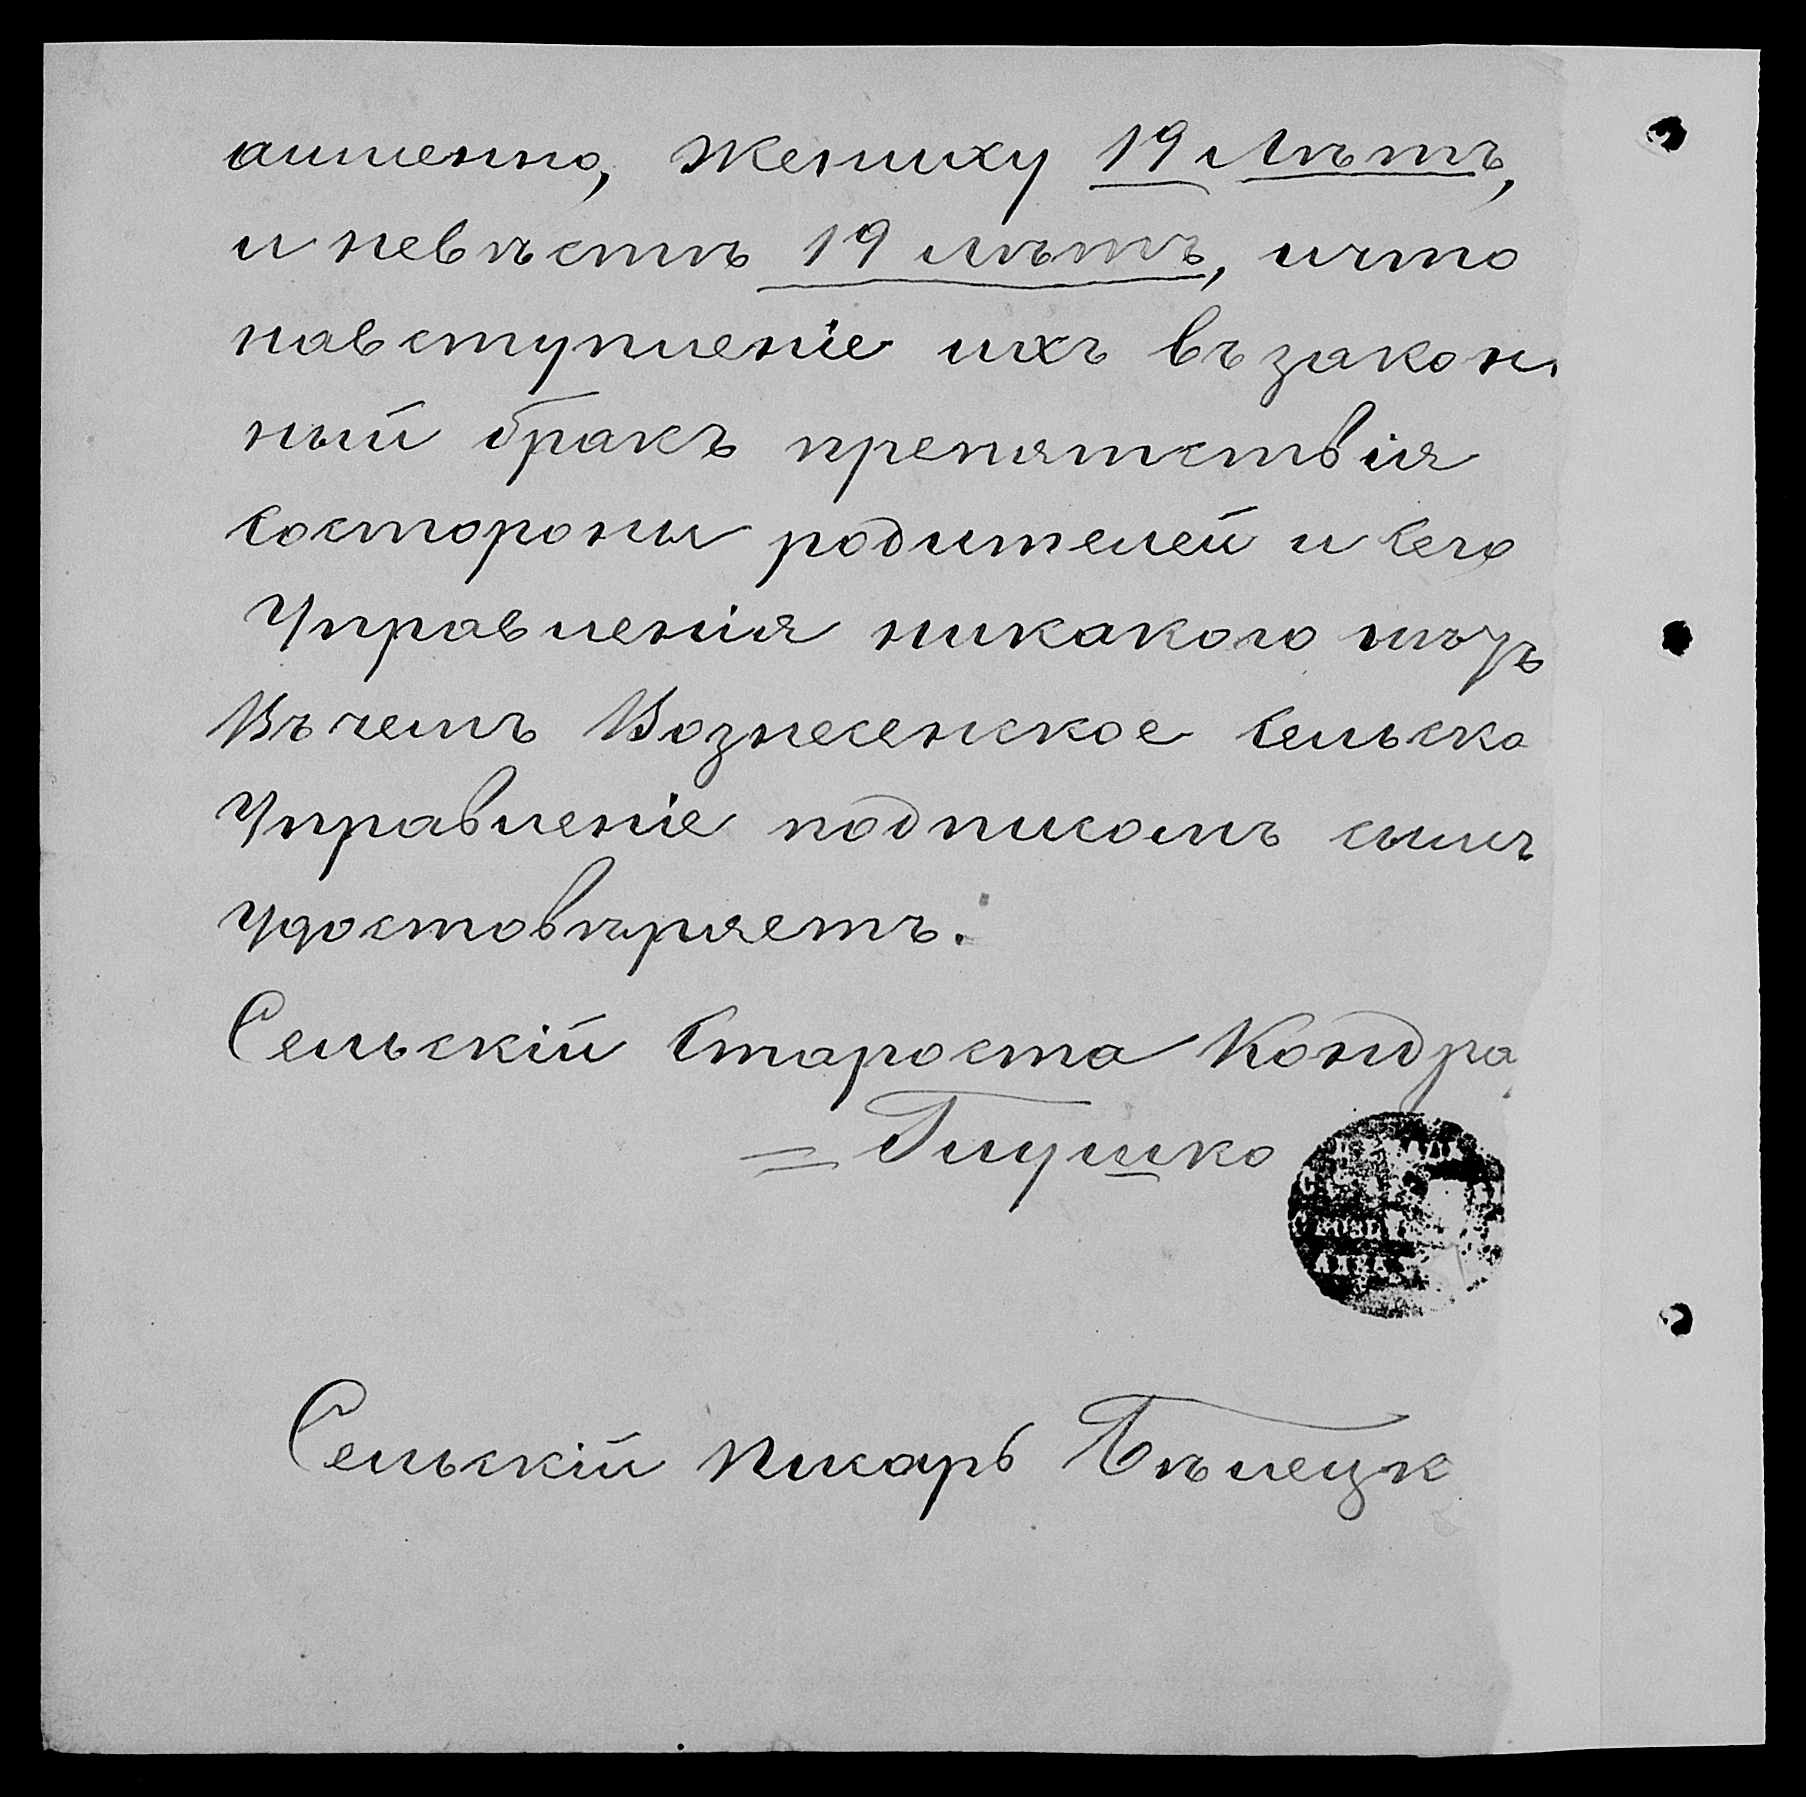 аименно, Жениху 19 Лѣтъ,
и невѣстѣ 19 лѣтъ, ичто
навступленіе ихъ възакон
ный бракъ препятствія
Состороны родителей и Сего
Управленія никакого нѣтъ
Въчемъ Вознесенское Сельско
Управленіе подписомъ симъ
удостовѣряетъ.
Сельскій Староста Кондра
= Глушко
Сельскій Писарь Бѣлецк